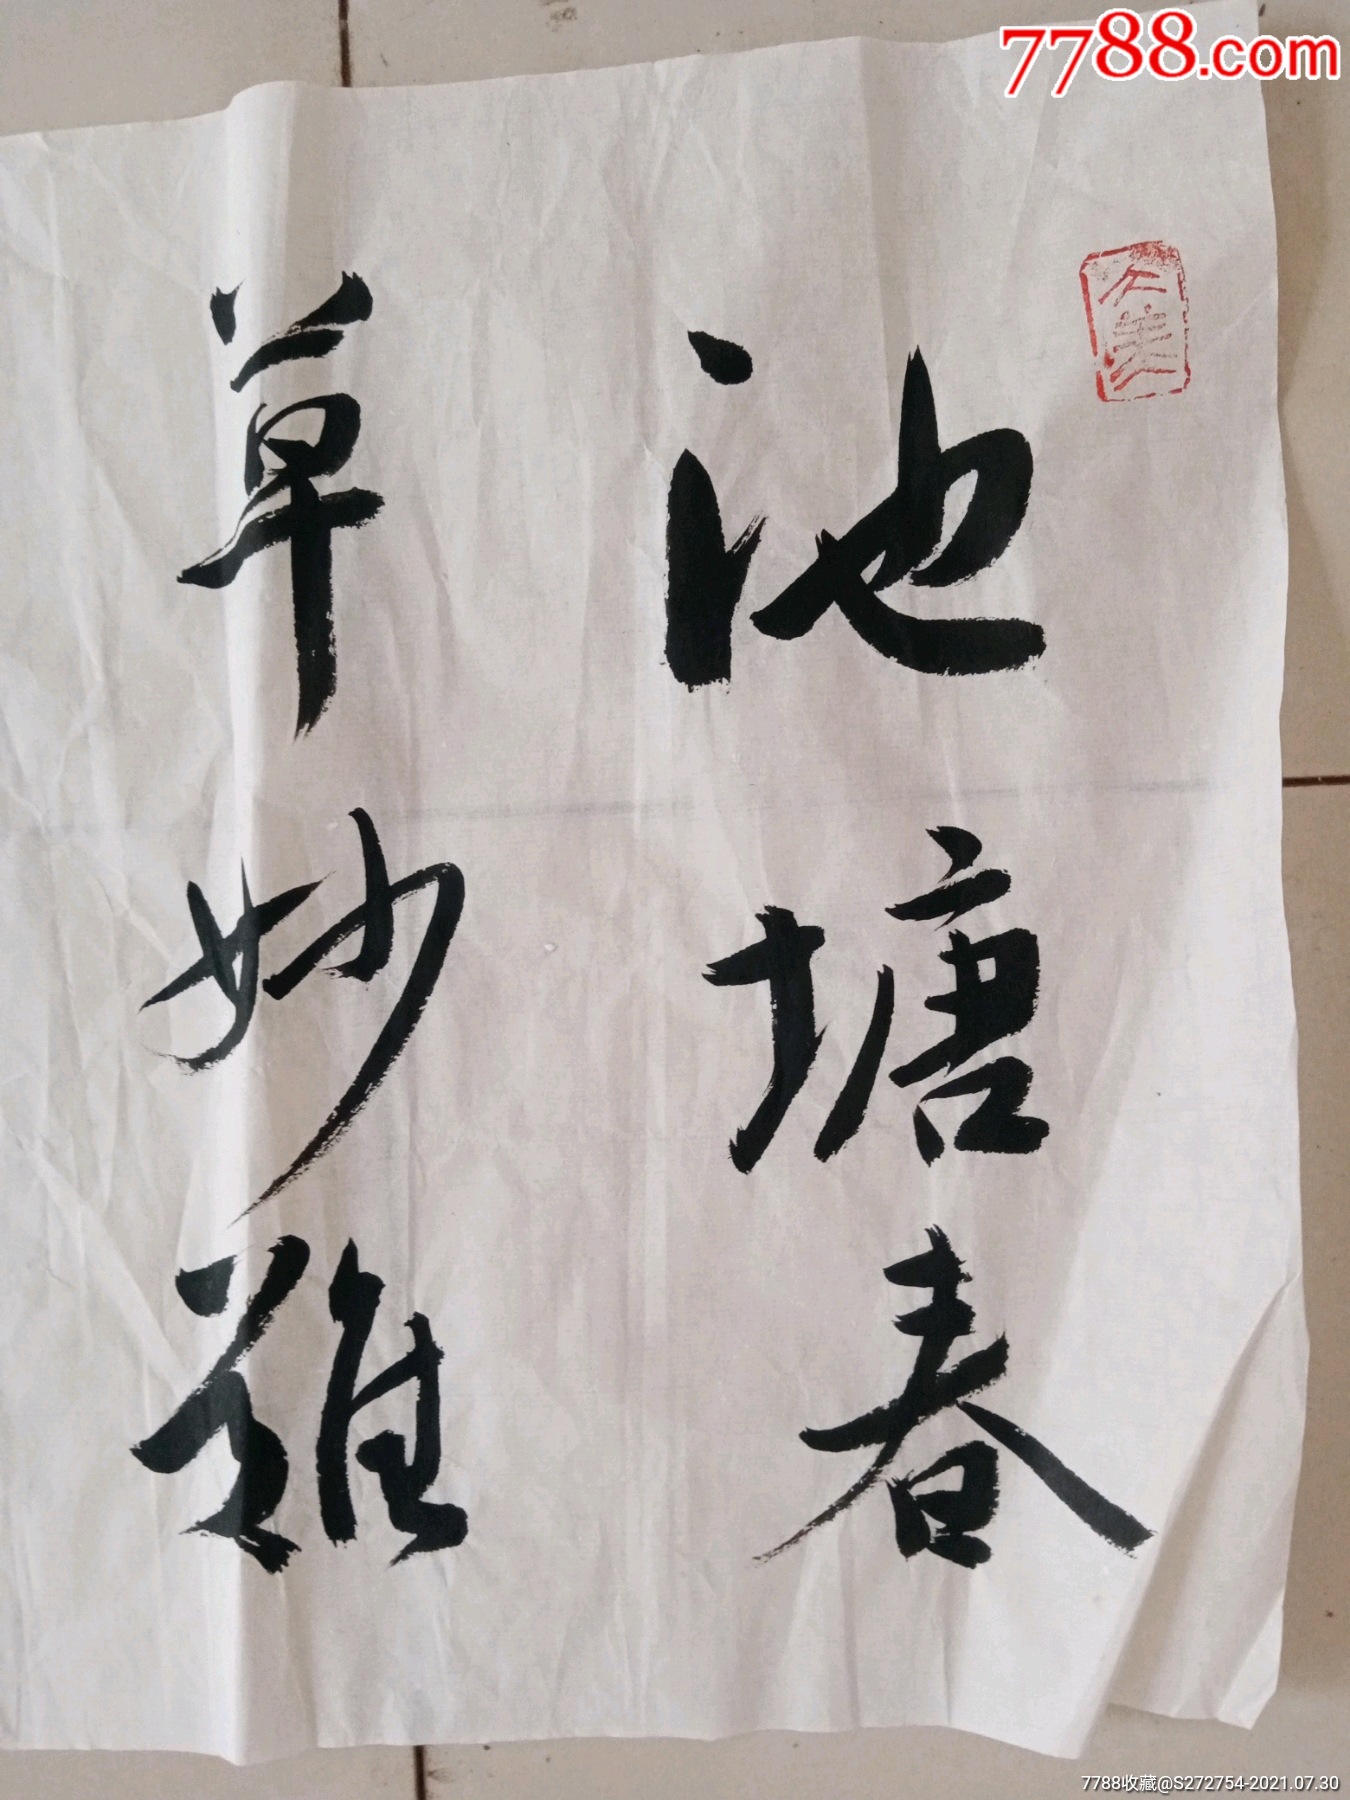 7788.com
池塘春
草妙難
7788收藏@S272754-2021.07.30